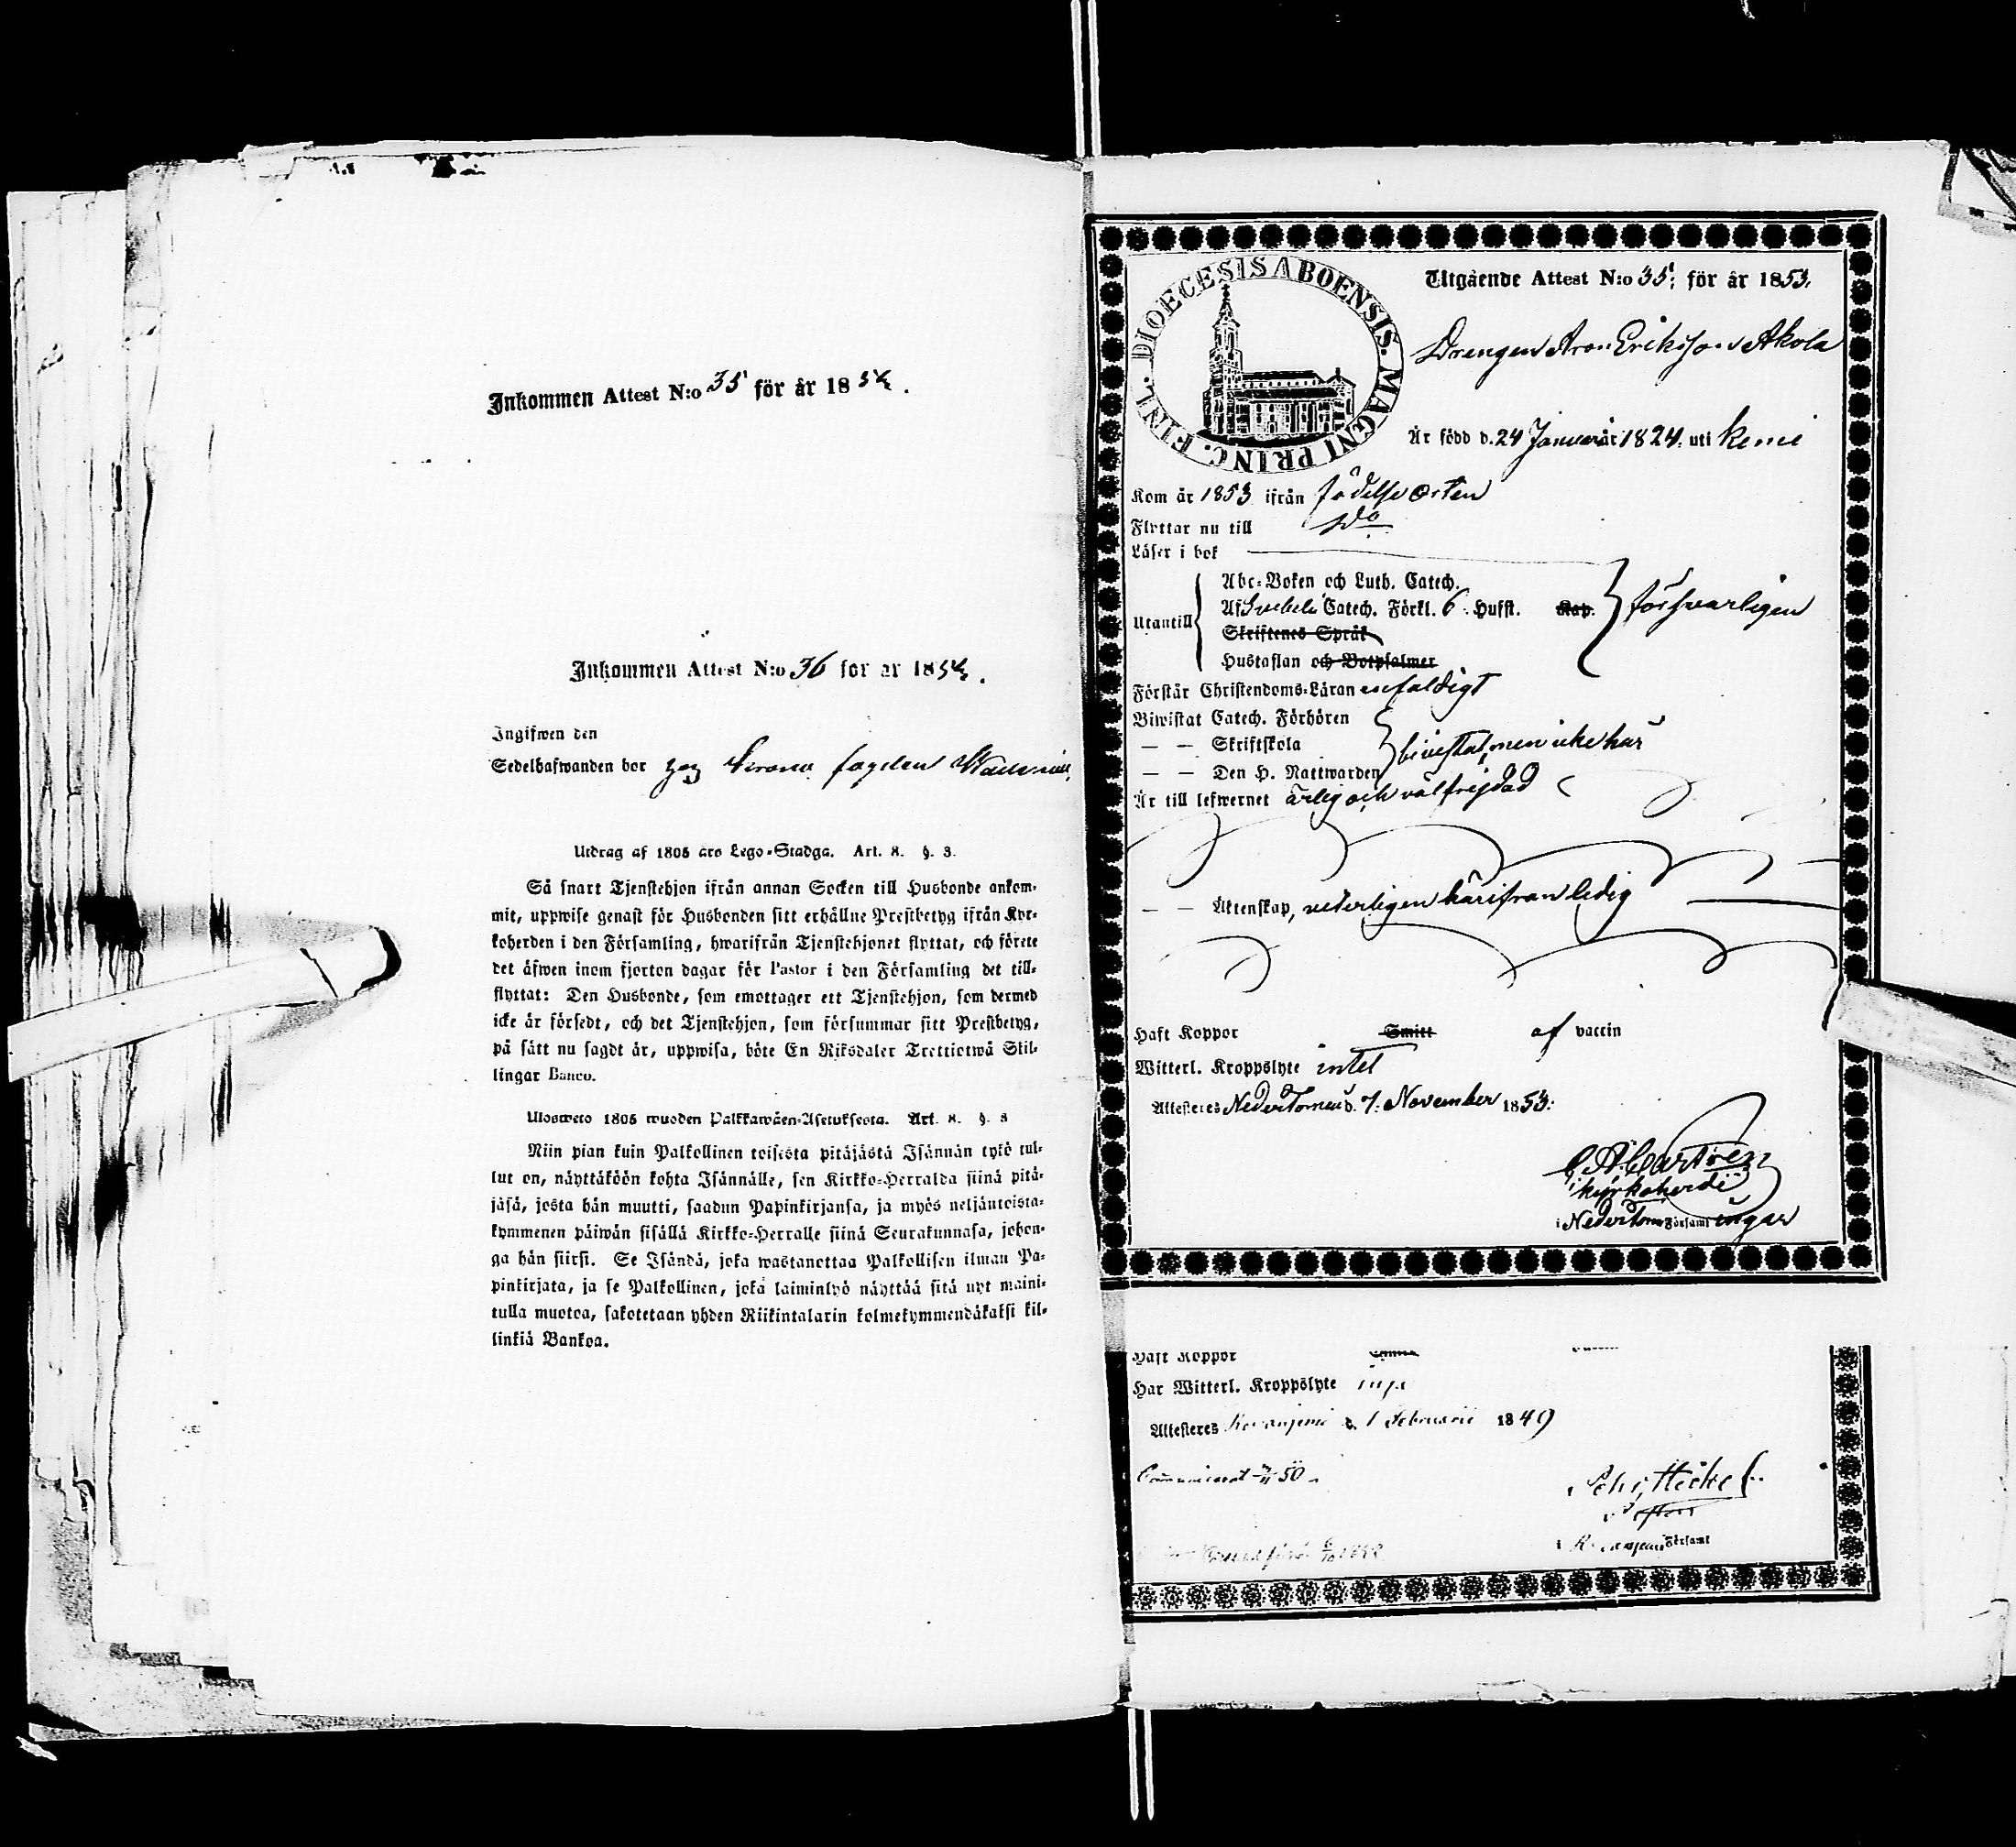 Inkommen Attest N:o 35 för år 1854.
Inkommen Attest N:o 36 för år 1854.
Ingifwen den
Sedelhafwanden bor hos
Utdrag af 1805 års Lego-Stadga. Art. 8. §. 3.
Så snart Tjenstehjon ifrån annan Socken till Husbonde ankom-
mit, uppwise genast för Husbonden sitt erhållne Prestbetyg ifrån Kyr-
koherden i den Församling, hwarifrån Tjenstehjonet flyttat, och förete
det äfwen inom fjorton dagar för Pastor i den Församling det till-
flyttat: Den Husbonde, som emottager ett Tjenstehjon, som dermed
icke är försedt, och det Tjenstehjon, som försummar sitt Prestbetyg,
på sätt nu sagdt är, uppwisa, böte En Riksdaler Trettiotwå Skil-
lingar Banco.
Ulosweto 1805 wuoden Palkkawäen-Asetuksesta. Art. 8. §. 3
Niin pian kuin Palkollinen toisesta pitäjästä Isännän tykö tul-
lut on, näyttäköön kohta Isännälle, sen Kirkko-Herralda siinä pitä-
jäsä, josta hän muutti, saadun Papinkirjansa, ja myös neljäntoista-
kymmenen päiwän sisällä Kirkko-Herralle siinä Seurakunnasa, johon-
ga hän siirsi. Se Isändä, joka wastanottaa Palkollisen ilman Pa-
pinkirjata, ja se Palkollinen, joka laiminlyö näyttää sitä nyt maini-
tulla muotoa, sakotetaan yhden Riikintalarin kolmekymmendäkaksi kil-
linkiä Bankoa.
DIOECESIS ABOENSIS. MAGNI PRINC. FINL.
Utgående Attest N:o 35: för år 1853.
Drengen Aron Eriksson Akola
Är född d. 24 Januari år 1824. uti Kemi
Kom år 1853 ifrån födelse orten
Flyttar nu till do
Läser i bok
Abc-Boken och Luth. Catech.
Utantill Af Svebeli Catech. Förkl. 6 Hufst. Kap. försvarligen
Skriftenes Språk
Hustaflan och Botpsalmer
Förstår Christendoms-Läran enfaldigt
Biwistat Catech. Förhören
— — Skriftskola bivistat, men icke här
— — Den H. Nattwarden
Är till lefwernet ärlig och välfrejdad
— — Äktenskap, veterligen härifrån ledig
Haft Koppor Smitt af vaccin
Witterl. Kroppslyte intet
Attesteres Neder Torneå d. 7. November 1853:
C A Castrén
kyrkoherde
i Neder Torneå Församlingar
Haft Koppor
Har Witterl. Kroppslyte inga
Attesteres Rovaniemi d. 1 Februarii 1849
Pastor
i Rovaniemi Församl